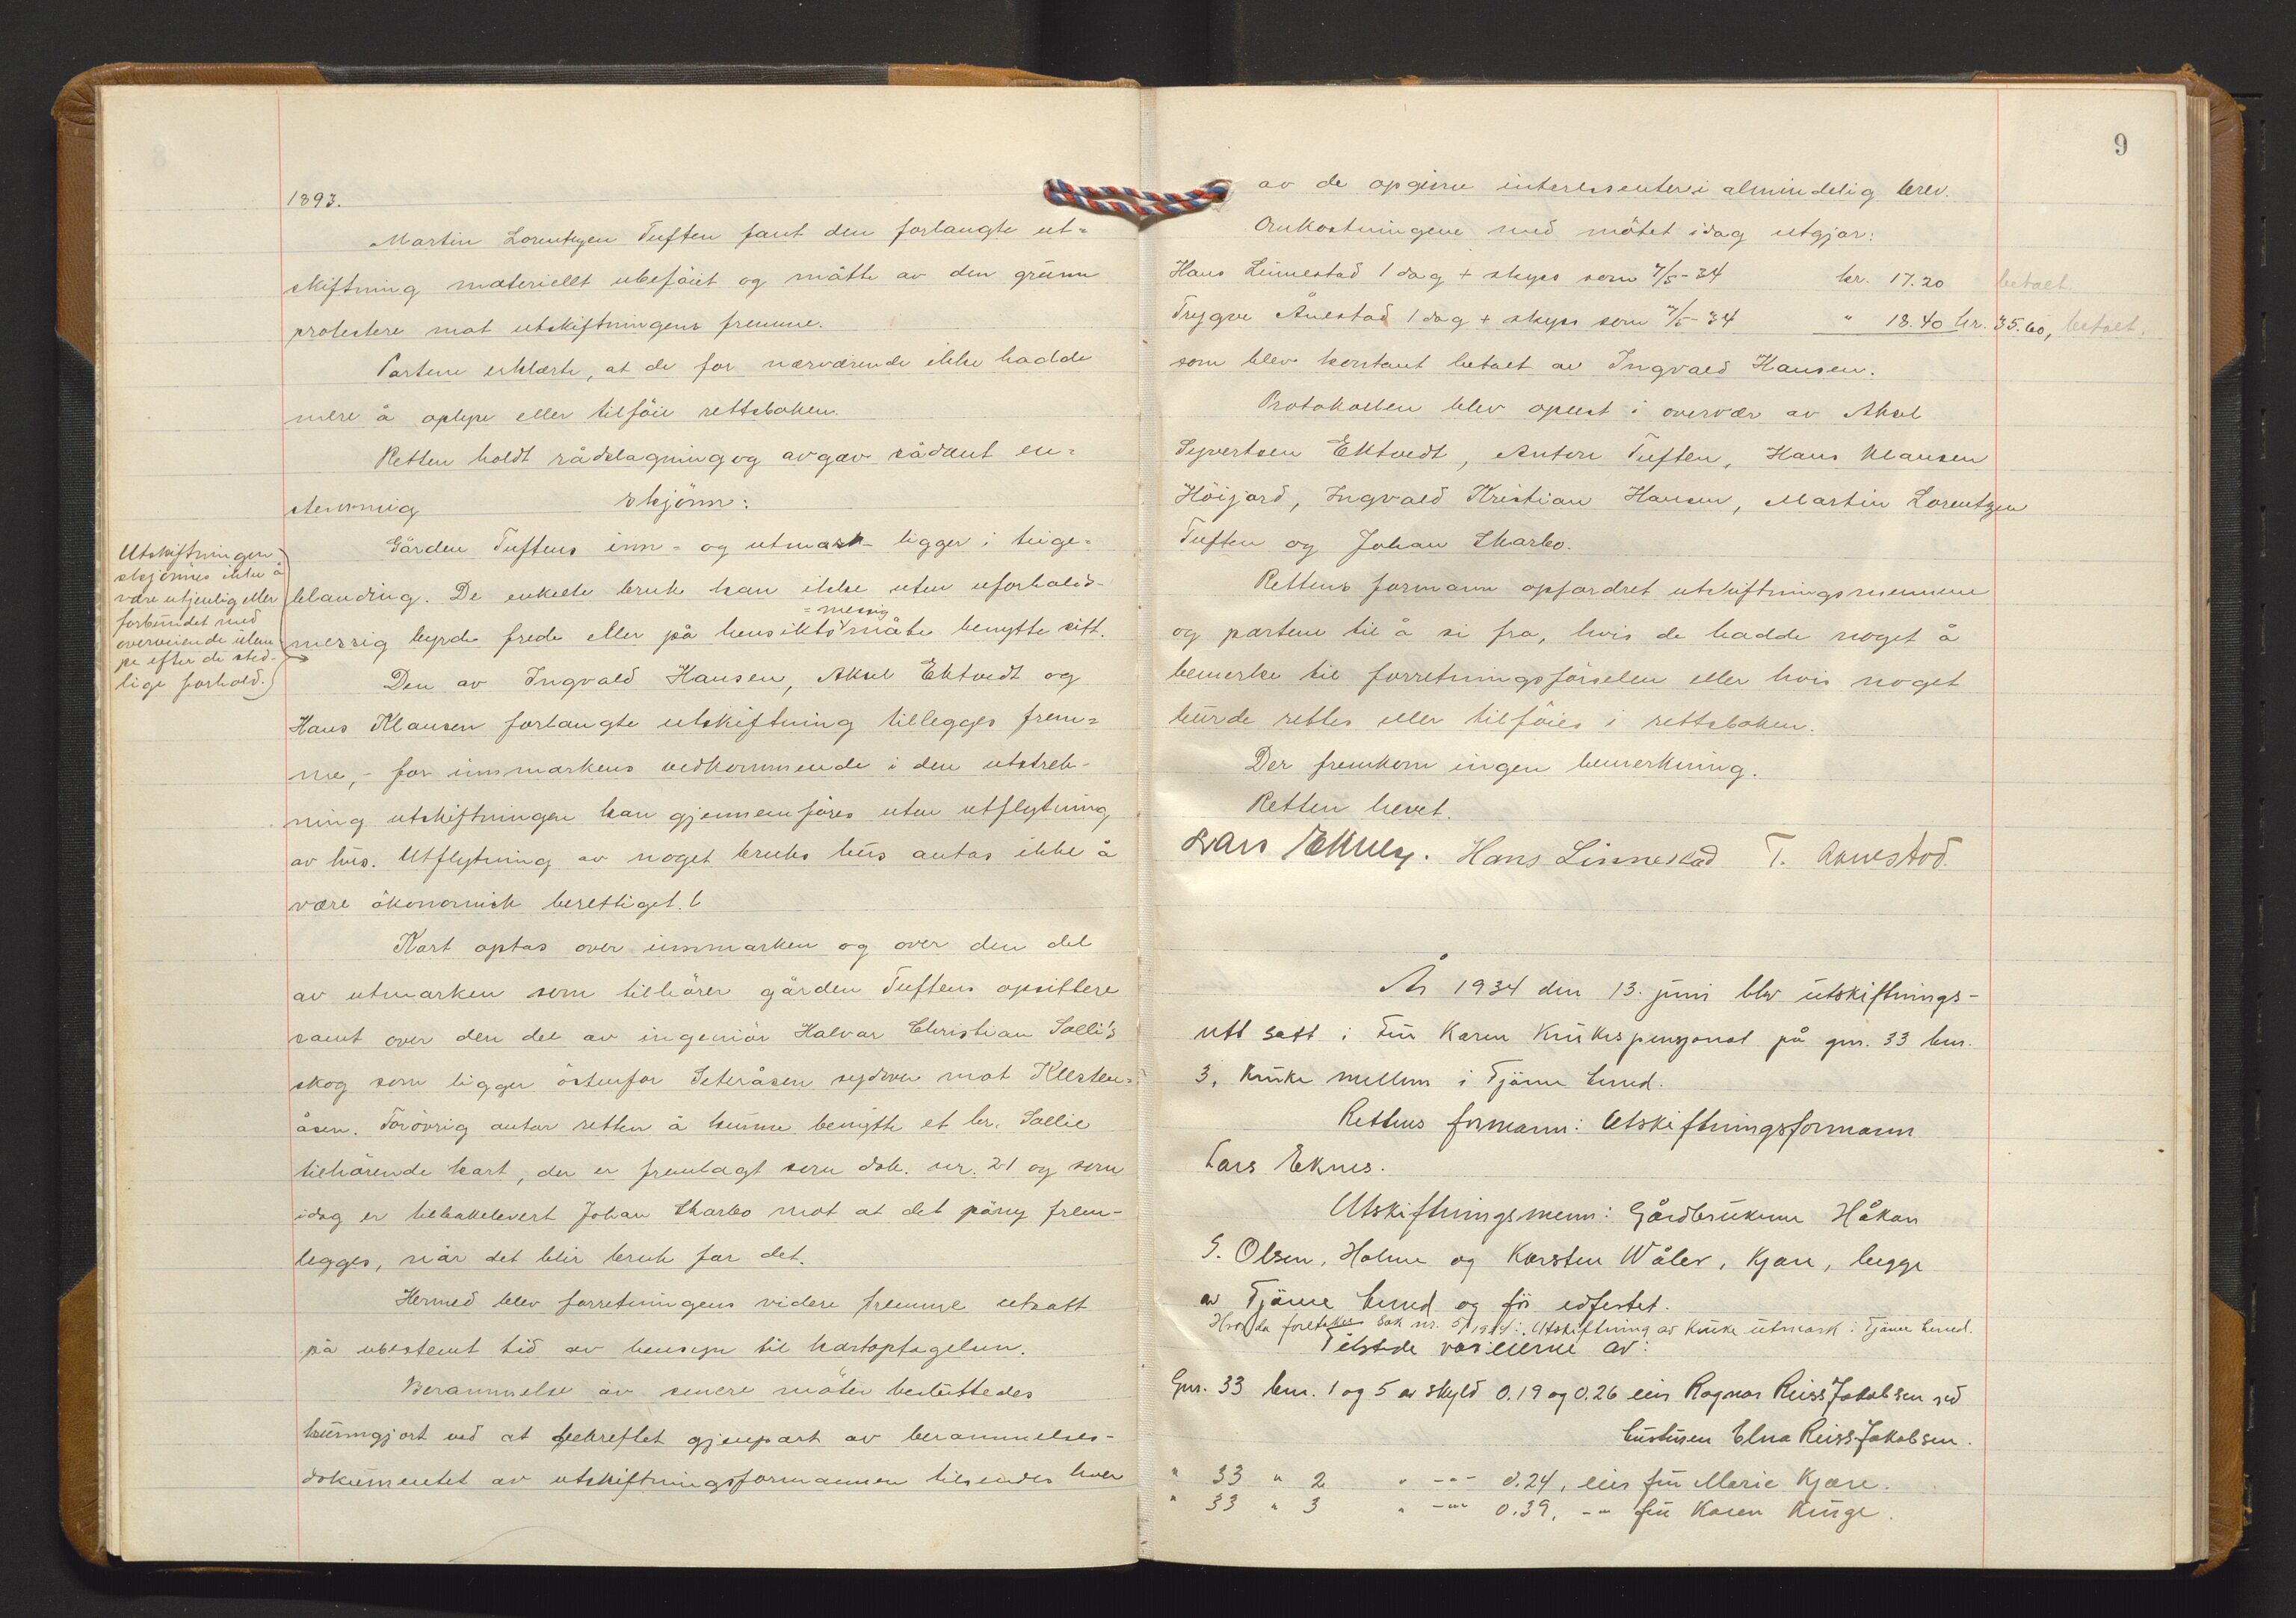 1893.
Martin Lorentzen Tuften fant den forlangte ut=
skiftning materiellt ubeföiet og måtte av den grunn
protestere mot utskiftningens fremme.
Partene erklærte, at de for nærværende ikke hadde
mere å oplyse eller tilföie rettsboken.
Retten holdt rådslagning og avgav sådant en=
stemmig skjönn:
Gården Tuftens inn- og utmark ligger i teige=
blanding. De enkelte bruk kan ikke uten uforholds-
messig byrde frede eller på hensikts=messig måte benytte sitt.
Utskiftningen
skjönnes ikke å
være utjenlig eller
forbundet med
overveiende ulem-
pe efter de sted-
lige forhold.)
Den av Ingvald Hansen, Aksel Ektvedt og
Hans Klausen forlangte utskiftning tillegges frem=
me, - for innmarkens vedkommende i den utstrek-
ning utskiftningen kan gjennemföres uten utflytning
av hus. Utflytning av noget bruks hus antas ikke å
være ökonomisk berettiget.
Kart optas over innmarken og over den del
av utmarken som tilhörer gården Tuftens opsittere
samt over den del av ingeniör Halvar Christian Sælli's
skog som ligger östenfor Seteråsen sydover mot Klesten=
åsen. Forövrig antar retten å kunne benytte et hr. Sællie
tilhörende kart, der er fremlagt som dok. nr. 21 og som
idag er tilbakelevert Johan Skarbo mot at det påny frem-
legges, når det blir bruk for det.
Hermed blev forretningens videre fremme utsatt
på ubestemt tid av hensyn til kartoptagelsen.
Berammelse av senere möter besluttedes
kunngjort ved at bekreftet gjenpart av berammelses-
dokumentet av utskiftningsformannen tilsendes hver
9
av de opgivne interessenter i almindelig brev.
Omkostningene med mötet idag utgjör:
Hans Linnestad 1 dag + skyss som 7/5-34 kr. 17.20 betalt
Trygve Ånestad 1 dag + skyss som 7/5-34 " 18.40 kr. 35.60, betalt.
som blev kontant betalt av Ingvald Hansen.
Protokollen blev oplest i overvær av Aksel
Syvertsen Ektvedt, Anton Tuften, Hans Klausen
Höijord, Ingvald Kristian Hansen, Martin Lorentzen
Tuften og Johan Skarbo.
Rettens formann opfordret utskiftningsmennene
og partene til å si fra, hvis de hadde noget å
bemerke til forretningsförselen eller hvis noget
burde rettes eller tilföies i rettsboken.
Der fremkom ingen bemerkning.
Retten hevet.
Lars Eknes. Hans Linnestad T. Aanestad.
År 1934 den 13. juni blev utskiftnings-
rett satt i fru Karen Krukes pensjonat på gnr. 33 bnr.
3, Kruke mellem i Tjöme herred.
Rettens formann: Utskiftningsformann
Lars Eknes.
Utskiftningsmenn: Gårdbrukerne Håkon
S. Olsen, Holme og Karsten Wåler, Kjære, begge
av Tjöme herred og för edfestet.
Hvor da foretokes Sak nr. 5/1934: Utskiftning av Kruke utmark i Tjöme herred.
Tilstede var eierne av:
Gnr. 33 bnr. 1 og 5 av skyld 0.19 og 0.26 eier Ragnar Reiss Jakobsen ved
hustruen Elna Reiss-Jakobsen.
" 33 " 2 " -"- 0.24, eier fru Marie Kjære.
" 33 " 3 " -"- 0.39, -"- fru Karen Kruge.